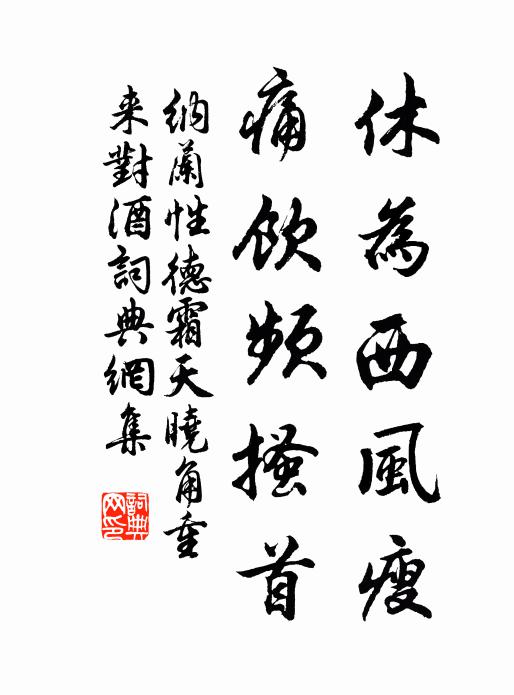 休為西風瘦
痛飲頻搔首
納蘭性德霜天曉角重
来對酒詞典網集
詞典
网印